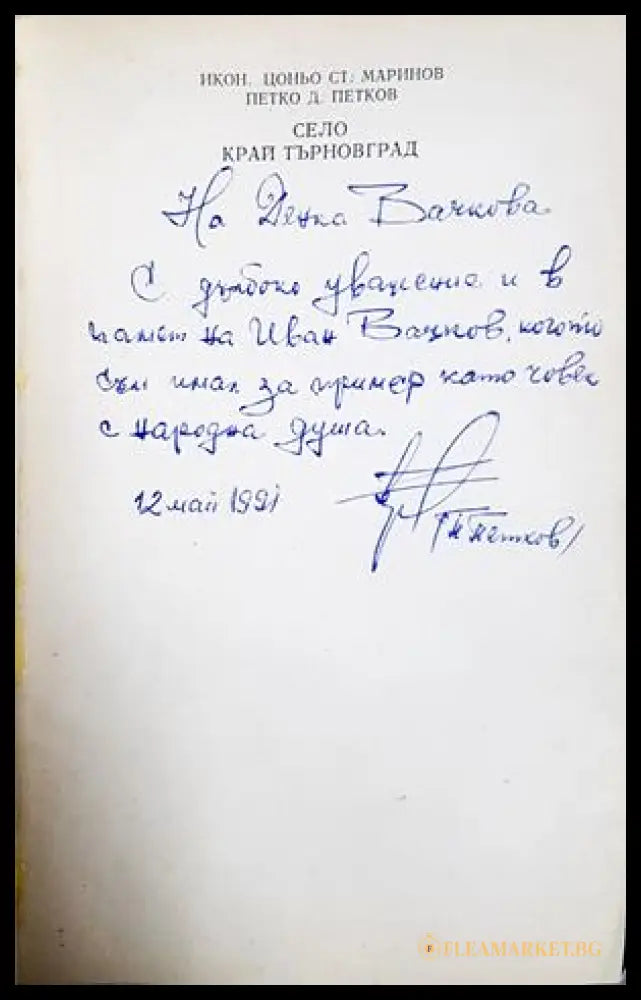 ИКОН. ЦОНЬО СТ. МАРИНОВ
ПЕТКО Д. ПЕТКОВ
СЕЛО
КРАЙ ТЪРНОВГРАД
На Денка Вачкова
С дълбоко уважение и в
памет на Иван Вачков, когото
съм имал за пример като човек
с народна душа.
12 май 1991
/П Петков/
FLEAMARKET.BG